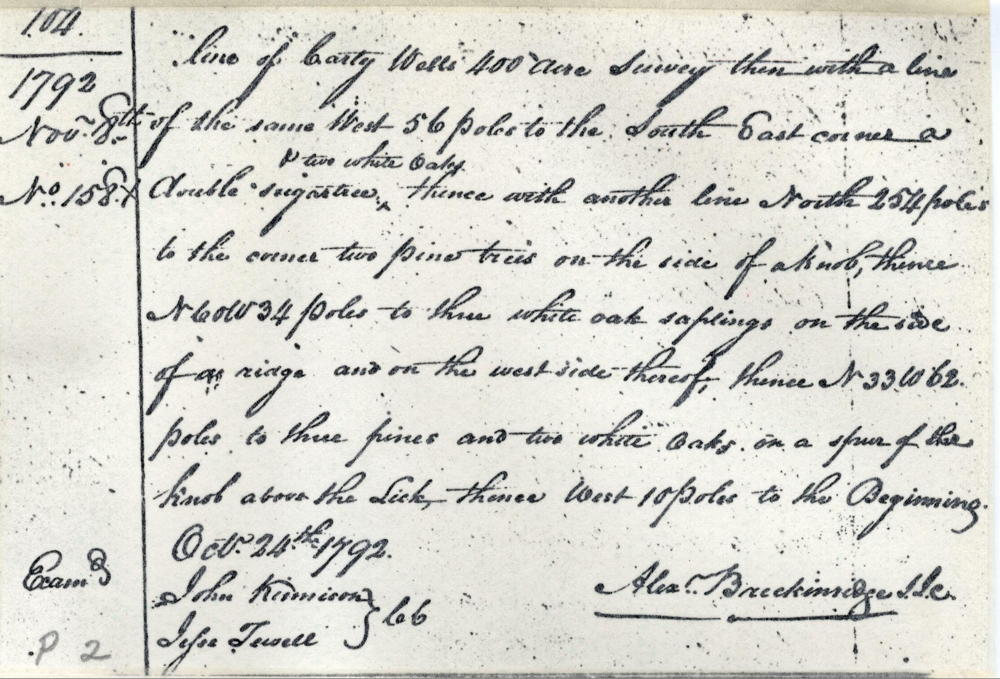 104.
1792
Nov.r 8th
No. 158
line of Carty Wells 400 acre Survey then with a line
of the same West 56 poles to the South East corner a
& two white Oaks
double sugartree, ^ thence with another line North 254 poles
to the corner two pine trees on the side of a Knob, thence
N 60 W 34 poles to three white oak saplings on the side
of a ridge and on the west side thereof, thence N 33 W 62.
poles to three pines and two white Oaks on a spur of the
knob above the Lick, thence West 10 poles to the Beginning.
Octr. 24th 1792.
John Kennison
Jesse Tewell } CC
Alexr. Breckinridge S.J.C.
Examd
P 2